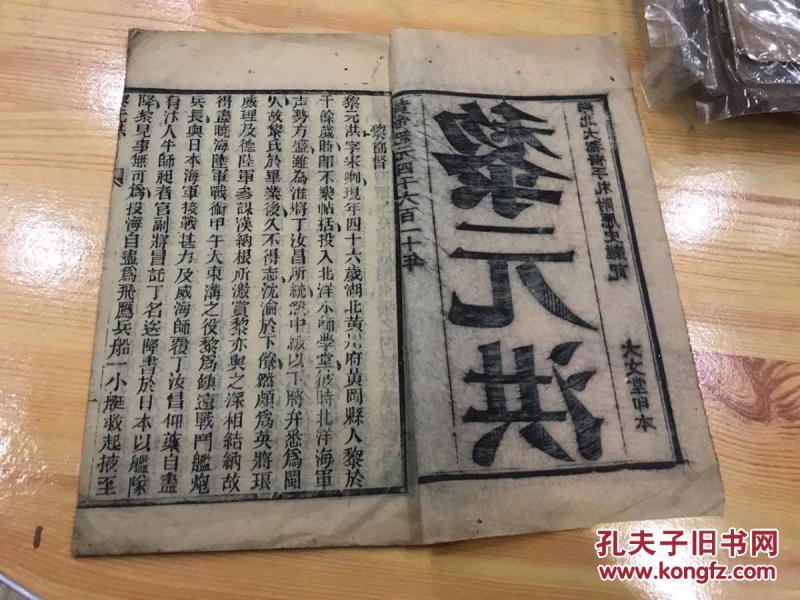 湖北大都督手札附歷史雜記
大文堂印本
黎元洪
黃帝紀元四千六百一十年
黎都督
黎元洪字宋卿現年四十六歲湖北黃州府黃岡縣人黎於
十餘歲時卽不樂帖括投入北洋水師學堂彼時北洋海軍
声勢方盛雖為淮將丁汝昌所統然中級以下將弁悉為閩
人故黎氏於畢業後久不得志沈淪於下僚然頗爲英將琅
威理及德陸軍參謀漢納根所激賞黎亦與之深相結納故
得盡曉海陸軍戰術甲午大東溝之役黎爲鎮遠戰鬥艦炮
兵長與日本海軍接戰甚力及威海師覆丁汝昌仰藥自盡
有汴人牛師昶者官副將冒託丁名送降書於日本以艦隊
降黎見事無可爲投海自盡爲飛鷹兵船一小艇救起掖至
黎元洪
一
孔夫子旧书网
www.kongfz.com